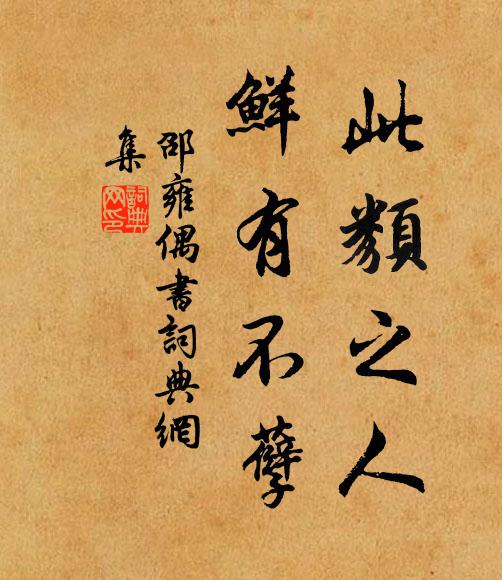 此類之人
鮮有不孽
邵雍偶書詞典網
集
詞典
网印